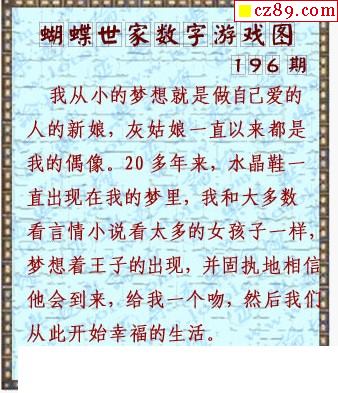 cz89.com
蝴蝶世家数字游戏图
196期
我从小的梦想就是做自己爱的
人的新娘，灰姑娘一直以来都是
我的偶像。20多年来，水晶鞋一
直出现在我的梦里，我和大多数
看言情小说看太多的女孩子一样，
梦想着王子的出现，并固执地相信
他会到来，给我一个吻，然后我们
从此开始幸福的生活。